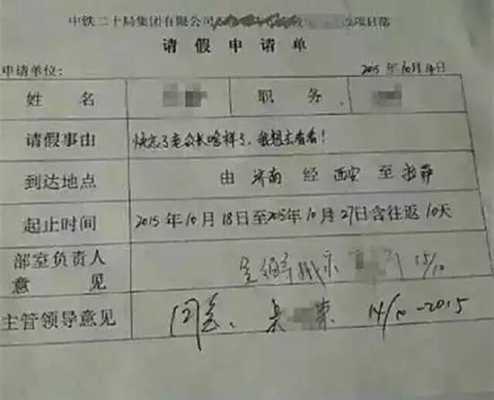 中铁二十局集团有限公司 项目部
请假申请单
申请单位: 2015年10月14日
姓名 职务
请假事由 快忘了老公长啥样了,我想去看看!
到达地点 由 济南 经 西安 至 拉萨
起止时间 2015年10月18日至2015年10月27日含往返10天
部室负责人
意见 15/10
主管领导意见 同意、吴 14/10-2015